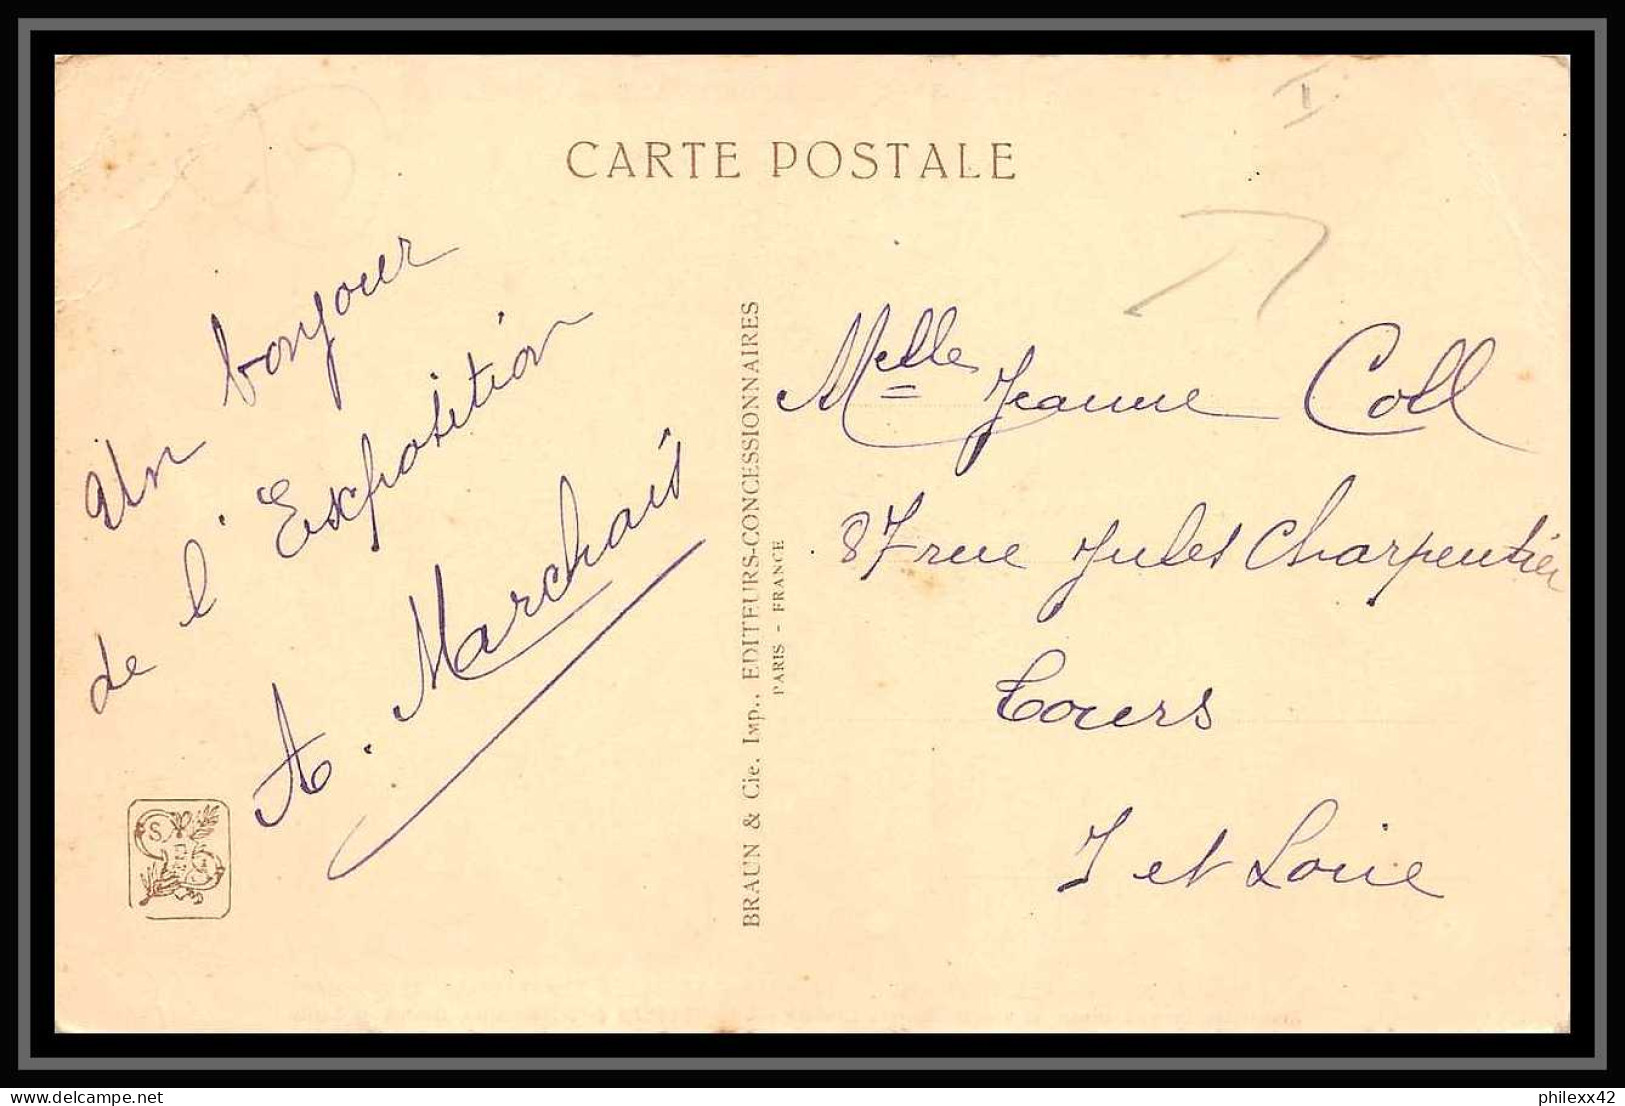 CARTE POSTALE
I
Un bonjour
de l'Exposition
A. Marchais
BRAUN & Cie. Imp., EDITEURS-CONCESSIONNAIRES
PARIS - FRANCE
Melle Jeanne Coll
87 rue Jules Charpentier
Tours
I et Loire
delcampe.net
philexx42